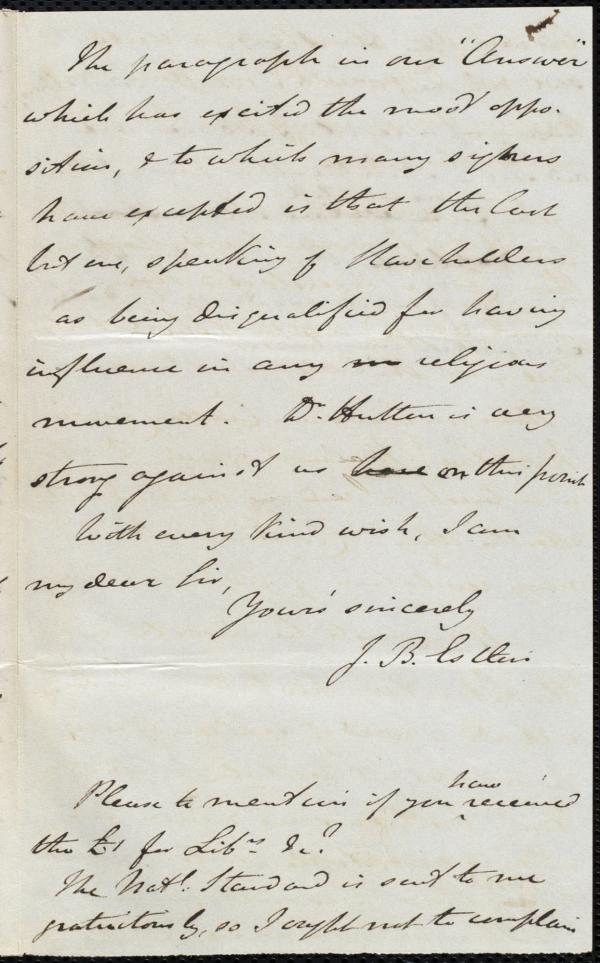 The paragraph in our "Answer"
which has excited the most oppo-
sition, & to which many signers
have excepted is that the last
but one, speaking of Slaveholders
as being disqualified for having
influence in any m religious
movement. Dr. Hutton is very
strong against us have on this point
With every kind wish, I am
my dear Sir,
Yours sincerely
J. B. Estlin
Please to mention if you have received
the £1 for Libr. &c?
The Natl. Standard is sent to me
gratuitously, so I ought not to complain